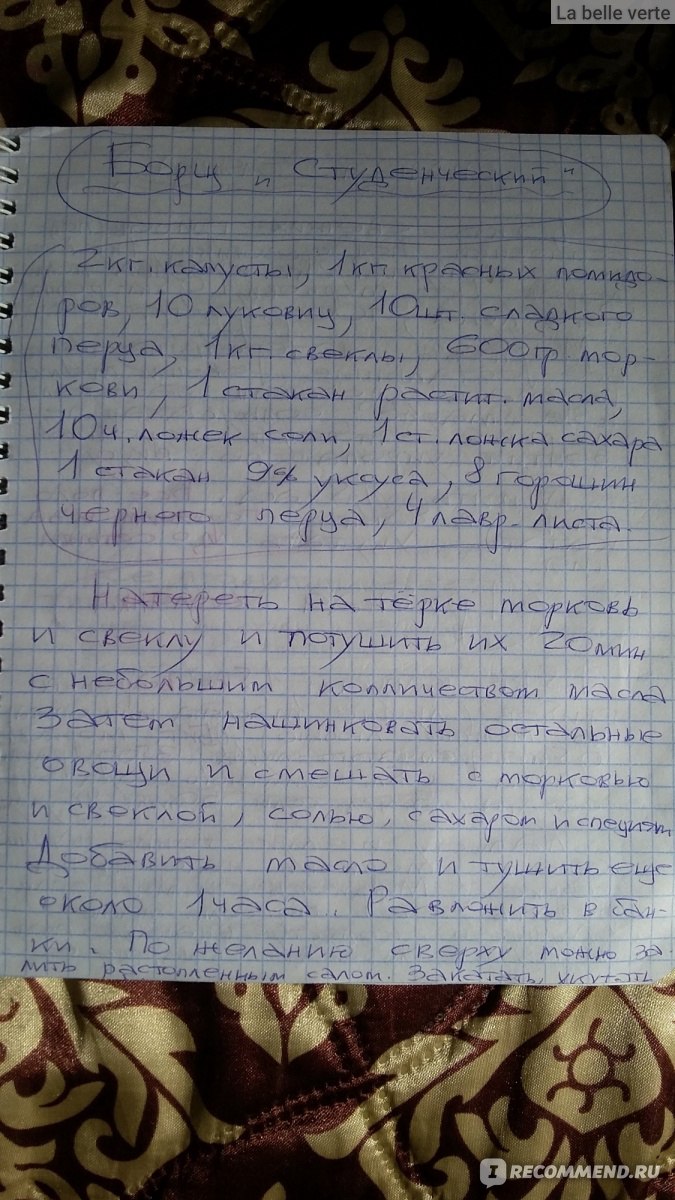 La belle verte
Борщ „Студенческий"
2кг. капусты, 1кг. красных помидо-
ров, 10 луковиц, 10шт. сладкого
перца, 1кг. свеклы, 600гр мор-
кови, 1 стакан растит. масла,
10ч. ложек соли, 1ст. ложка сахара
1 стакан 9% уксуса, 8 горошин
черного перца, 4 лавр. листа.
Натереть на тёрке морковь
и свеклу и потушить их 20мин
с небольшим колличеством масла
Затем нашинковать остальные
овощи и смешать с морковью
и свеклой, солью, сахаром и специям
Добавить масло и тушить еще
около 1часа. Разложить в бан-
ки. По желанию сверху можно за-
лить растопленным салом. Закатать, укутать
IRECOMMEND.RU